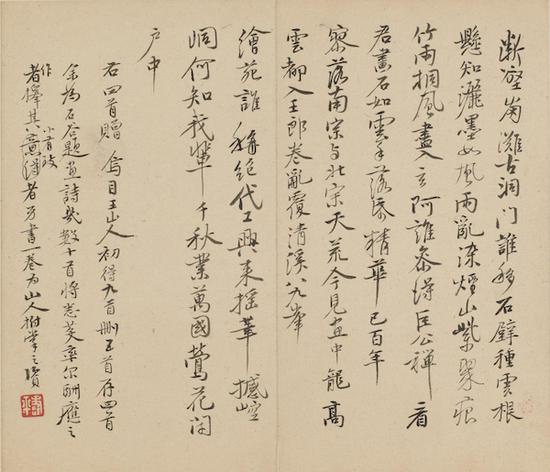 断壑崩滩古洞门誰移石壁種雲根
懸知灑墨如風雨亂染煙山紫翠痕
竹雨桐風盡入玄阿誰參得巨公禪 看
君畫石如雲手落紙精華已百年
寥落南宗与北宗天荒今見畫中龍 高
雲都入王郎卷亂覆清溪八九峯
繪苑誰稱絕代工興來揺筆撼崆
峒何知我輩千秋業萬國鶯花閉
户中
右四首贈
目王山人初得九首刪五首存四首
余為石谷題畫詩幾數十首將悉
率尔酬應之
作
者擇其
意得者另書一卷为山人